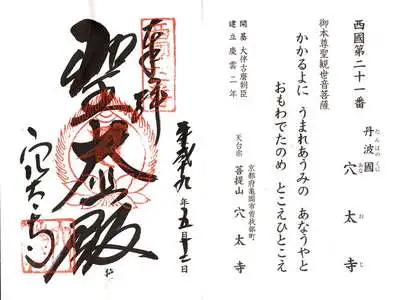 西國第二十一番
丹波國 穴太寺
たんばのくに あなおじ
御本尊聖観世音菩薩
かかるよに うまれあうみの あなうやと
おもわでたのめ とこえひとこえ
開基 大伴古麿朝臣
建立 慶雲二年
京都府亀岡市曽我部町
天台宗 菩提山 穴太寺
奉拝
聖大悲殿
平成十九年五月十二日
穴太寺